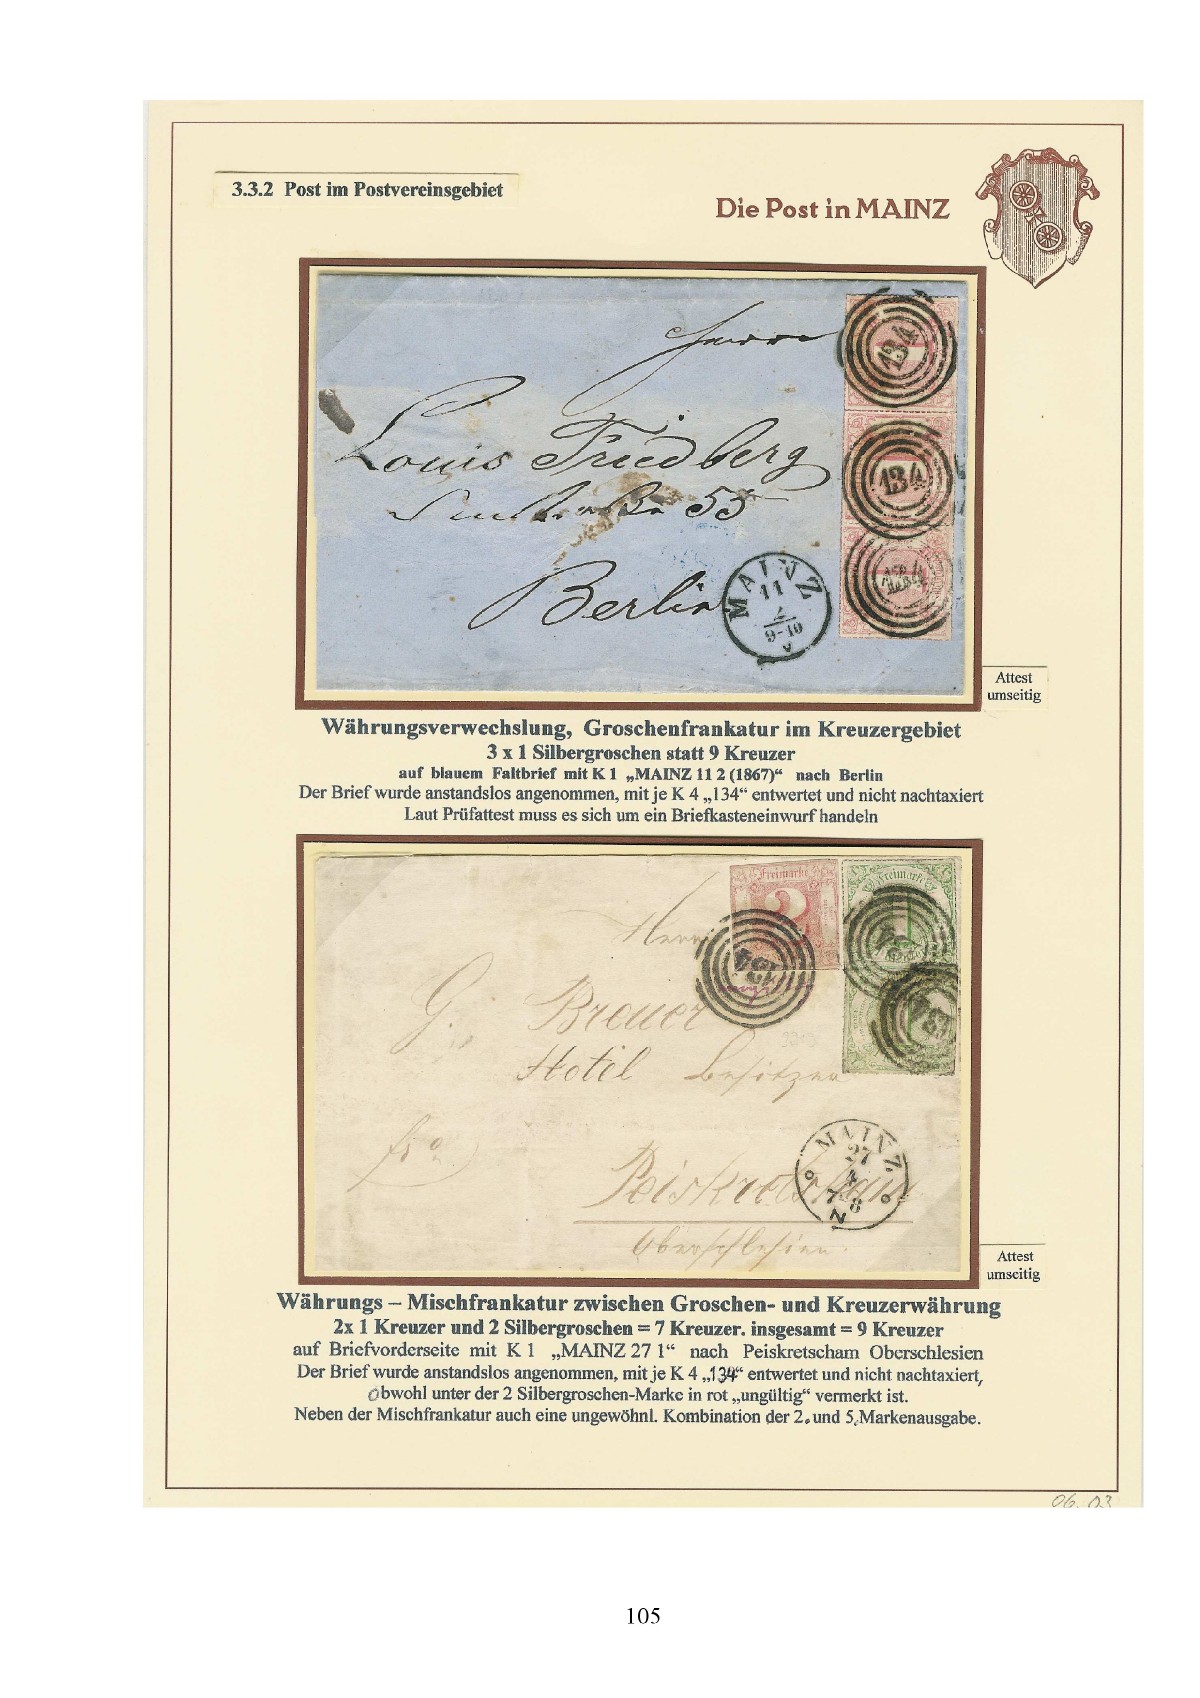 3.3.2 Post im Postvereinsgebiet
Die Post in MAINZ
Herrn
134
Louis Friedberg
134
55
134
Berlin
MAINZ
11
2
9-10
Attest
umseitig
Währungsverwechslung, Groschenfrankatur im Kreuzergebiet
3 x 1 Silbergroschen statt 9 Kreuzer
auf blauem Faltbrief mit K 1 „MAINZ 11 2 (1867)“ nach Berlin
Der Brief wurde anstandslos angenommen, mit je K 4 „134“ entwertet und nicht nachtaxiert
Laut Prüfattest muss es sich um ein Briefkasteneinwurf handeln
Freimarke
2
Freimark
1
Herrn
134
134
134
G. Breuer
Hotel Besitzer
fro
MAINZ
27
7-8
N
Peiskretscham
Oberschlesien.
Attest
umseitig
Währungs – Mischfrankatur zwischen Groschen- und Kreuzerwährung
2x 1 Kreuzer und 2 Silbergroschen = 7 Kreuzer. insgesamt = 9 Kreuzer
auf Briefvorderseite mit K 1 „MAINZ 27 1“ nach Peiskretscham Oberschlesien
Der Brief wurde anstandslos angenommen, mit je K 4 „134“ entwertet und nicht nachtaxiert,
obwohl unter der 2 Silbergroschen-Marke in rot „ungültig“ vermerkt ist.
Neben der Mischfrankatur auch eine ungewöhnl. Kombination der 2. und 5. Markenausgabe.
06.03
105